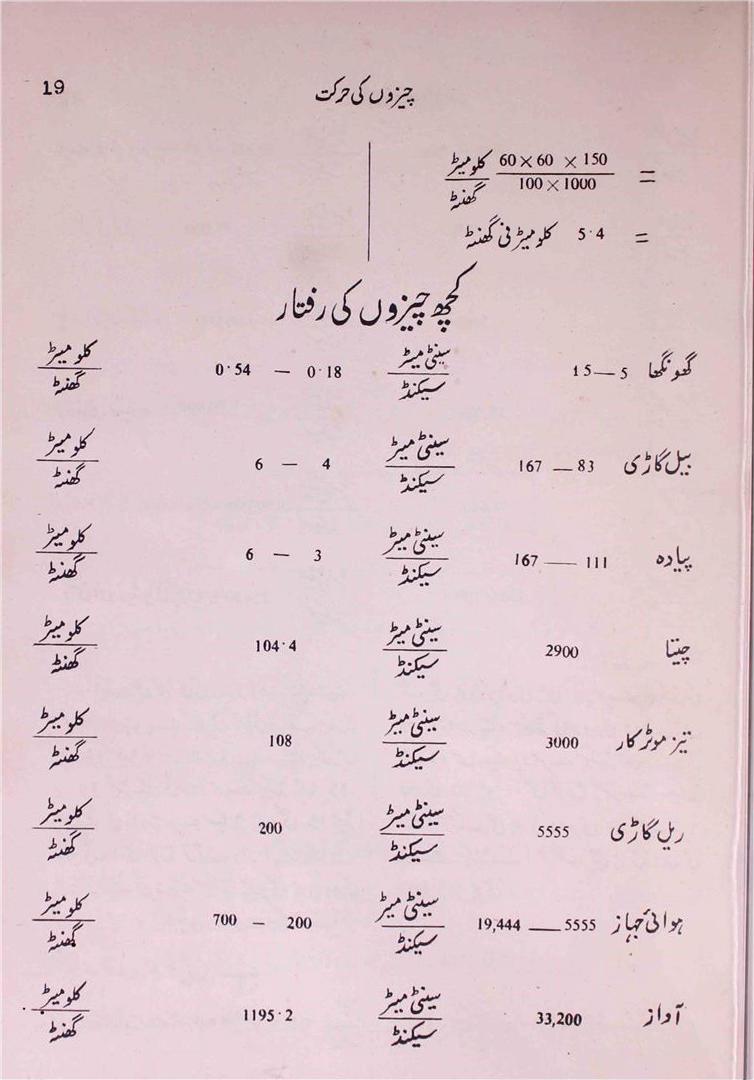 چیزوں کی حرکت 19
= 60 × 60 × 150 / 100 × 1000 کلومیٹر / گھنٹہ
= 5·4 کلومیٹر فی گھنٹہ
کچھ چیزوں کی رفتار
گھونگھا 5 — 15 سینٹی میٹر / سیکنڈ 0·18 — 0·54 کلومیٹر / گھنٹہ
بیل گاڑی 83 — 167 سینٹی میٹر / سیکنڈ 4 — 6 کلومیٹر / گھنٹہ
پیادہ 111 — 167 سینٹی میٹر / سیکنڈ 3 — 6 کلومیٹر / گھنٹہ
چیتا 2900 سینٹی میٹر / سیکنڈ 104·4 کلومیٹر / گھنٹہ
تیز موٹر کار 3000 سینٹی میٹر / سیکنڈ 108 کلومیٹر / گھنٹہ
ریل گاڑی 5555 سینٹی میٹر / سیکنڈ 200 کلومیٹر / گھنٹہ
ہوائی جہاز 5555 — 19,444 سینٹی میٹر / سیکنڈ 200 — 700 کلومیٹر / گھنٹہ
آواز 33,200 سینٹی میٹر / سیکنڈ 1195·2 کلومیٹر / گھنٹہ